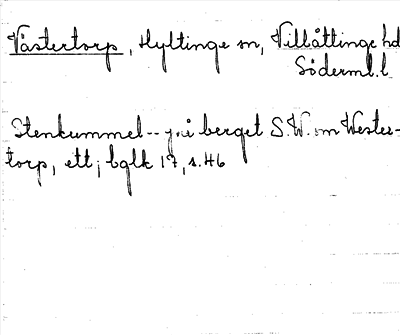 Västertorp, Hyltinge sn, Villåttinge hd
Söderml. l.
Stenkummel -- på berget S.W. om Wester-
torp, ett; bglk 17, s. 46